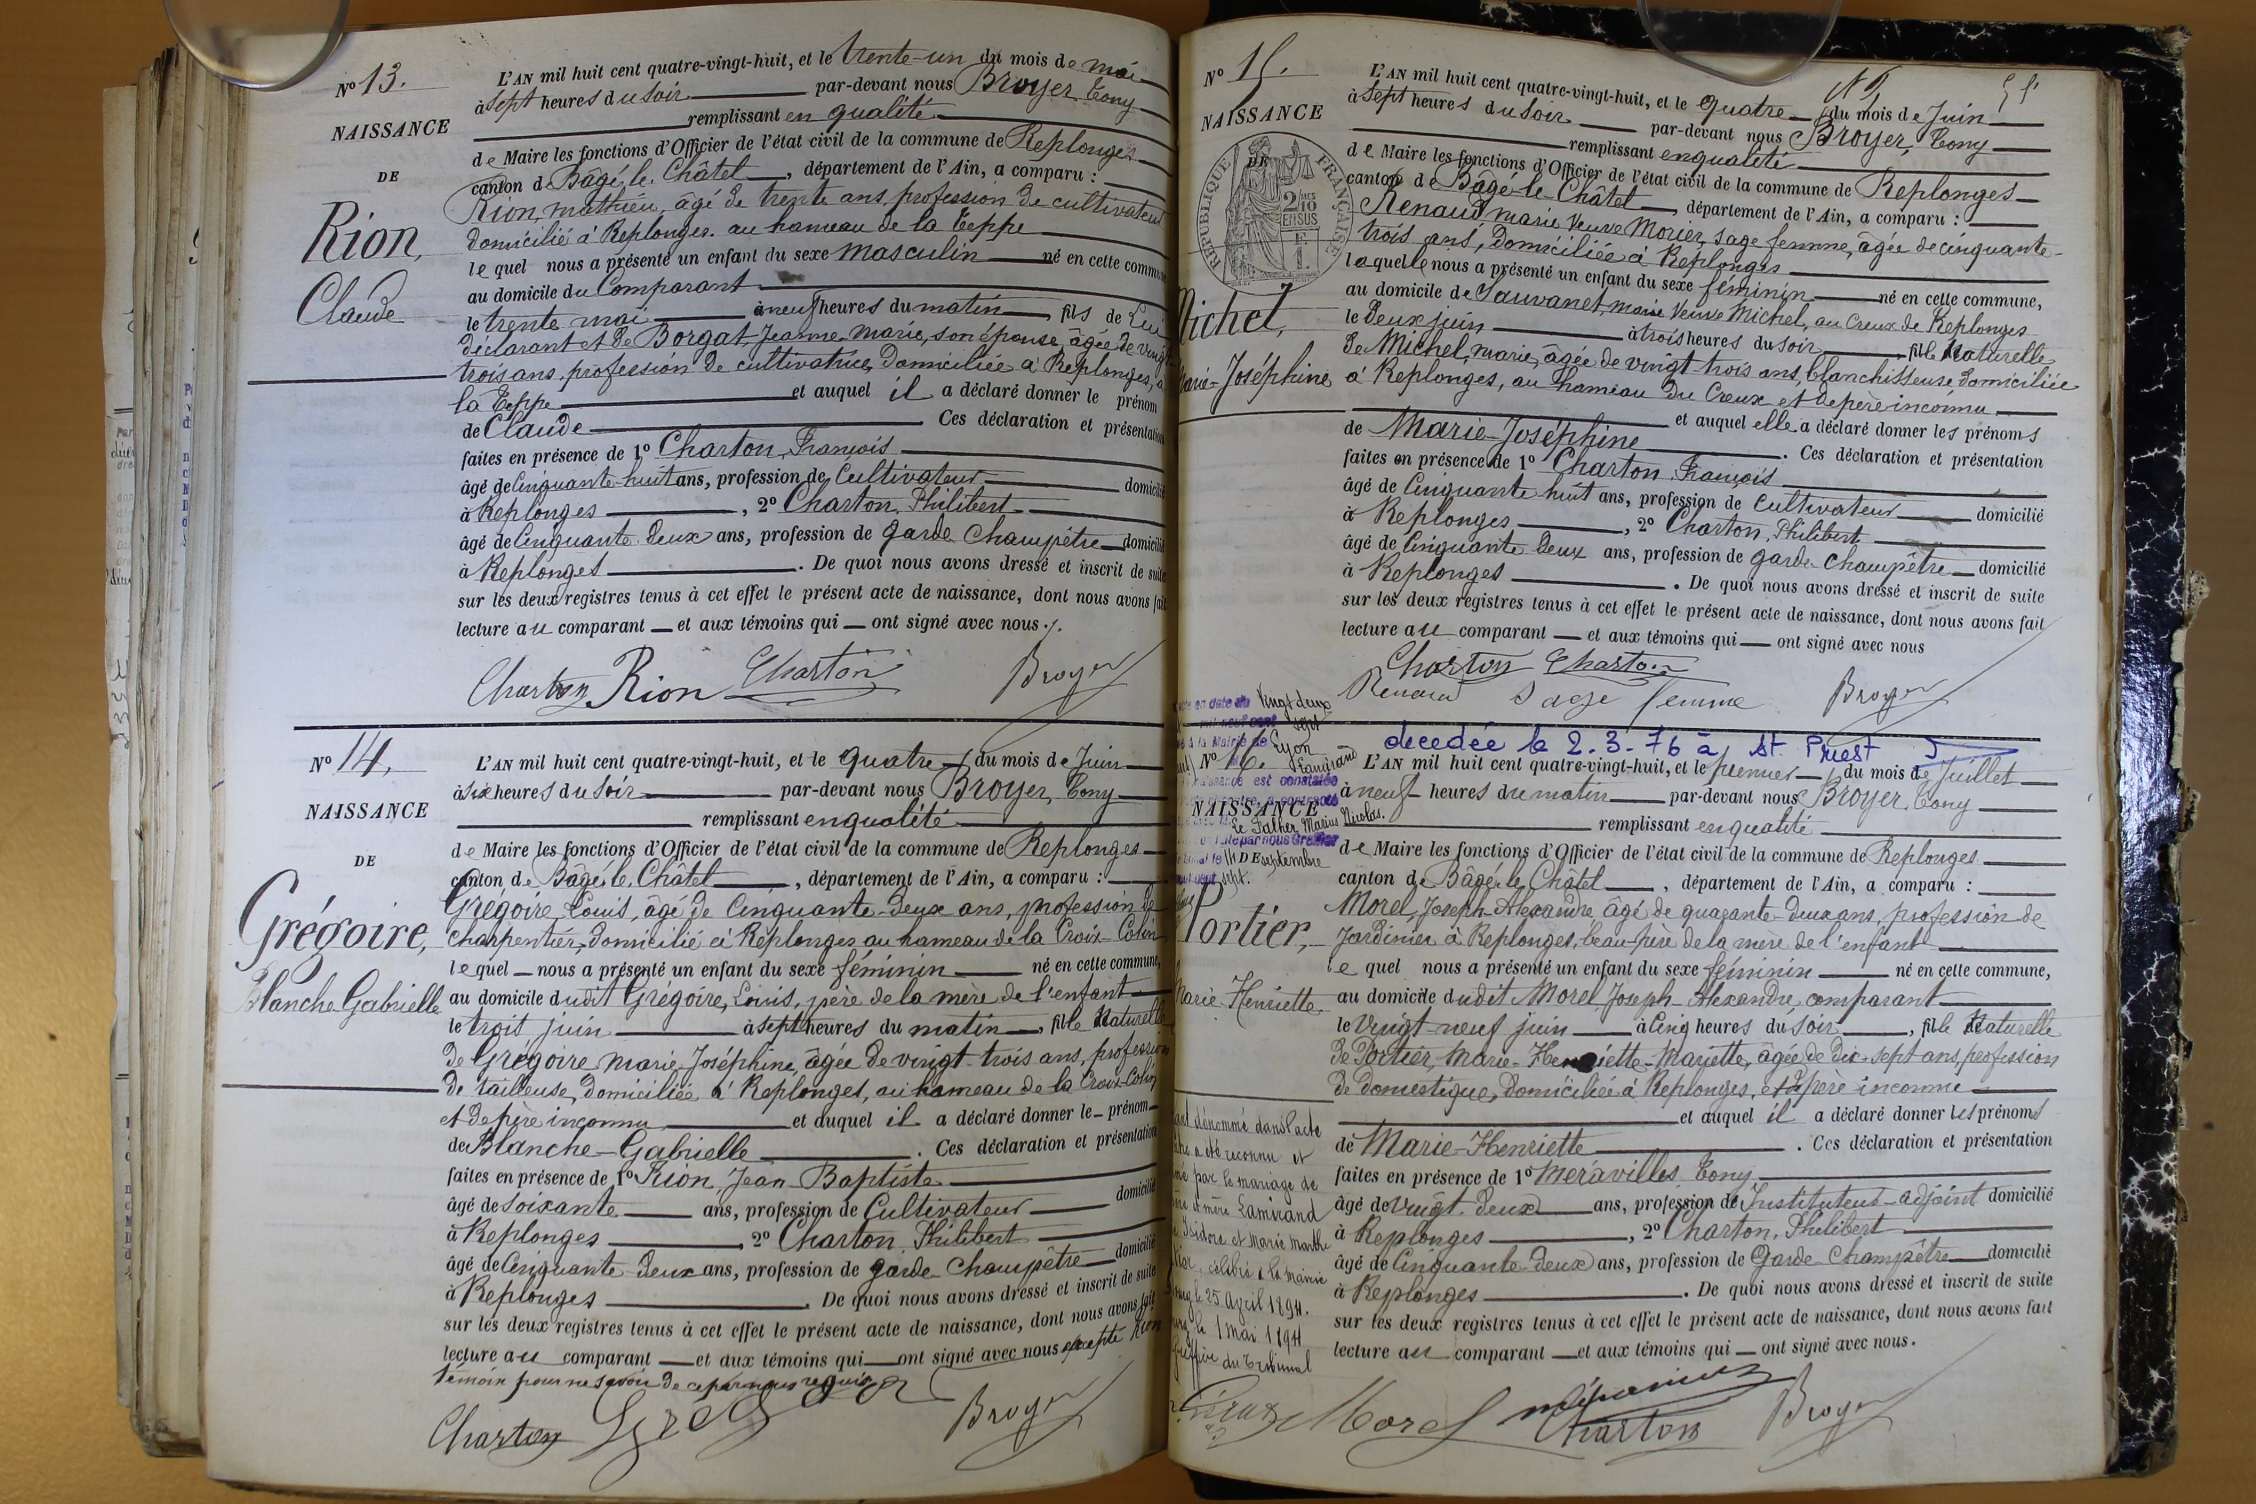 N° 13.
NAISSANCE
DE
Rion,
Claude
L'AN mil huit cent quatre-vingt-huit, et le trente-un du mois de mai
à sept heures du soir par-devant nous Broyer, Tony
remplissant en qualité
de Maire les fonctions d'Officier de l'état civil de la commune de Replonges
canton de Bâgé-le-Châtel, département de l'Ain, a comparu :
Rion, mathieu, âgé de trente ans, profession de cultivateur
domicilié à Replonges. au hameau de la Teppe
lequel nous a présenté un enfant du sexe masculin né en cette commune
au domicile du Comparant
le trente mai à neuf heures du matin, fils de Lui
déclarant et de Borgat, Jeanne-Marie, son épouse, âgée de vingt
trois ans, profession de cultivatrice, domiciliée à Replonges, à
la Teppe et auquel il a déclaré donner le prénom
de Claude Ces déclaration et présentation
faites en présence de 1° Charton, François
âgé de Cinquante-huit ans, profession de Cultivateur domicilié
à Replonges, 2° Charton, Philibert
âgé de Cinquante deux ans, profession de garde Champêtre domicilié
à Replonges. De quoi nous avons dressé et inscrit de suite
sur les deux registres tenus à cet effet le présent acte de naissance, dont nous avons fait
lecture au comparant et aux témoins qui ont signé avec nous.
Charton Rion Charton Broyer
N° 14.
NAISSANCE
DE
Grégoire,
Blanche-Gabrielle
L'AN mil huit cent quatre-vingt-huit, et le quatre du mois de Juin
à six heures du soir par-devant nous Broyer, Tony
remplissant en qualité
de Maire les fonctions d'Officier de l'état civil de la commune de Replonges
canton de Bâgé-le-Châtel, département de l'Ain, a comparu :
Grégoire, Louis, âgé de Cinquante-deux ans, profession de
charpentier, domicilié à Replonges au hameau de la Croix-Colin
lequel nous a présenté un enfant du sexe féminin né en cette commune,
au domicile dudit Grégoire, Louis, père de la mère de l'enfant
le trois juin à sept heures du matin, fille Naturelle
de Grégoire, marie-Joséphine, âgée de vingt-trois ans, profession
de tailleuse, domiciliée à Replonges, au hameau de la Croix-Colin
et de père inconnu et auquel il a déclaré donner le prénom
de Blanche-Gabrielle. Ces déclaration et présentation
faites en présence de 1° Rion, Jean-Baptiste
âgé de soixante ans, profession de Cultivateur domicilié
à Replonges, 2° Charton, Philibert
âgé de Cinquante deux ans, profession de garde-Champêtre domicilié
à Replonges. De quoi nous avons dressé et inscrit de suite
sur les deux registres tenus à cet effet le présent acte de naissance, dont nous avons fait
lecture au comparant et aux témoins qui ont signé avec nous excepté Rion
témoin pour ne savoir de ce par nous requis
Charton Broyer
N° 15.
NAISSANCE
DE
RÉPUBLIQUE FRANÇAISE
2/10
EN SUS
Michel,
Marie-Joséphine
L'AN mil huit cent quatre-vingt-huit, et le quatre du mois de Juin
à Sept heures du soir par-devant nous Broyer, Tony
remplissant en qualité
de Maire les fonctions d'Officier de l'état civil de la commune de Replonges
canton de Bâgé-le-Châtel, département de l'Ain, a comparu :
Renaud marie Veuve Morier, sage femme, âgée de cinquante-
trois ans, Domiciliée à Replonges
laquelle nous a présenté un enfant du sexe féminin né en cette commune,
au domicile de Sauvanet, marie Veuve Michel, au Creux de Replonges
le deux juin à trois heures du soir fille Naturelle
de Michel, marie, âgée de vingt-trois ans, blanchisseuse domiciliée
à Replonges, au hameau du Creux et de père inconnu
et auquel elle a déclaré donner les prénoms
de Marie-Joséphine. Ces déclaration et présentation
faites en présence de 1° Charton, François
âgé de Cinquante huit ans, profession de cultivateur domicilié
à Replonges, 2° Charton, Philibert
âgé de Cinquante Deux ans, profession de garde-Champêtre domicilié
à Replonges. De quoi nous avons dressé et inscrit de suite
sur les deux registres tenus à cet effet le présent acte de naissance, dont nous avons fait
lecture au comparant et aux témoins qui ont signé avec nous
Charton Charton
Renaud sage femme Broyer
en date du Vingt-deux
mil neuf cent sept
à la Mairie de Lyon
naissance est constatée
Le Palher Marius Nicolas.
septembre
sept.
N° 16.
NAISSANCE
DE
Portier,
Marie-Henriette
décedée le 2.3.76 à St Priest
L'AN mil huit cent quatre-vingt-huit, et le premier du mois de Juillet
à neuf heures du matin par-devant nous Broyer, Tony
remplissant en qualité
de Maire les fonctions d'Officier de l'état civil de la commune de Replonges
canton de Bâgé-le-Châtel, département de l'Ain, a comparu :
Morel, Joseph-Alexandre, âgé de quarante-deux ans, profession de
Jardinier à Replonges, beau-père de la mère de l'enfant
lequel nous a présenté un enfant du sexe féminin né en cette commune,
au domicile dudit Morel, Joseph-Alexandre, comparant
le Vingt-neuf juin à Cinq heures du soir, fille Naturelle
de Portier, Marie-Henriette-Mariette, âgée de dix-sept ans, profession
de domestique, Domiciliée à Replonges, et de père inconnu
et auquel il a déclaré donner les prénoms
de Marie-Henriette. Ces déclaration et présentation
faites en présence de 1° Meravilles, Tony
âgé de Vingt-deux ans, profession de Instituteur-adjoint domicilié
à Replonges, 2° Charton, Philibert
âgé de Cinquante-Deux ans, profession de Garde-Champêtre domicilié
à Replonges. De quoi nous avons dressé et inscrit de suite
sur les deux registres tenus à cet effet le présent acte de naissance, dont nous avons fait
lecture au comparant et aux témoins qui ont signé avec nous.
dénommé dans l'acte
a été reconnu et
par le mariage de
et mère Lamirand
Isidore et Marie Marthe
célébré à la mairie
le 25 Avril 1894.
le 1 Mai 1894
du Tribunal
Morel Charton Broyer